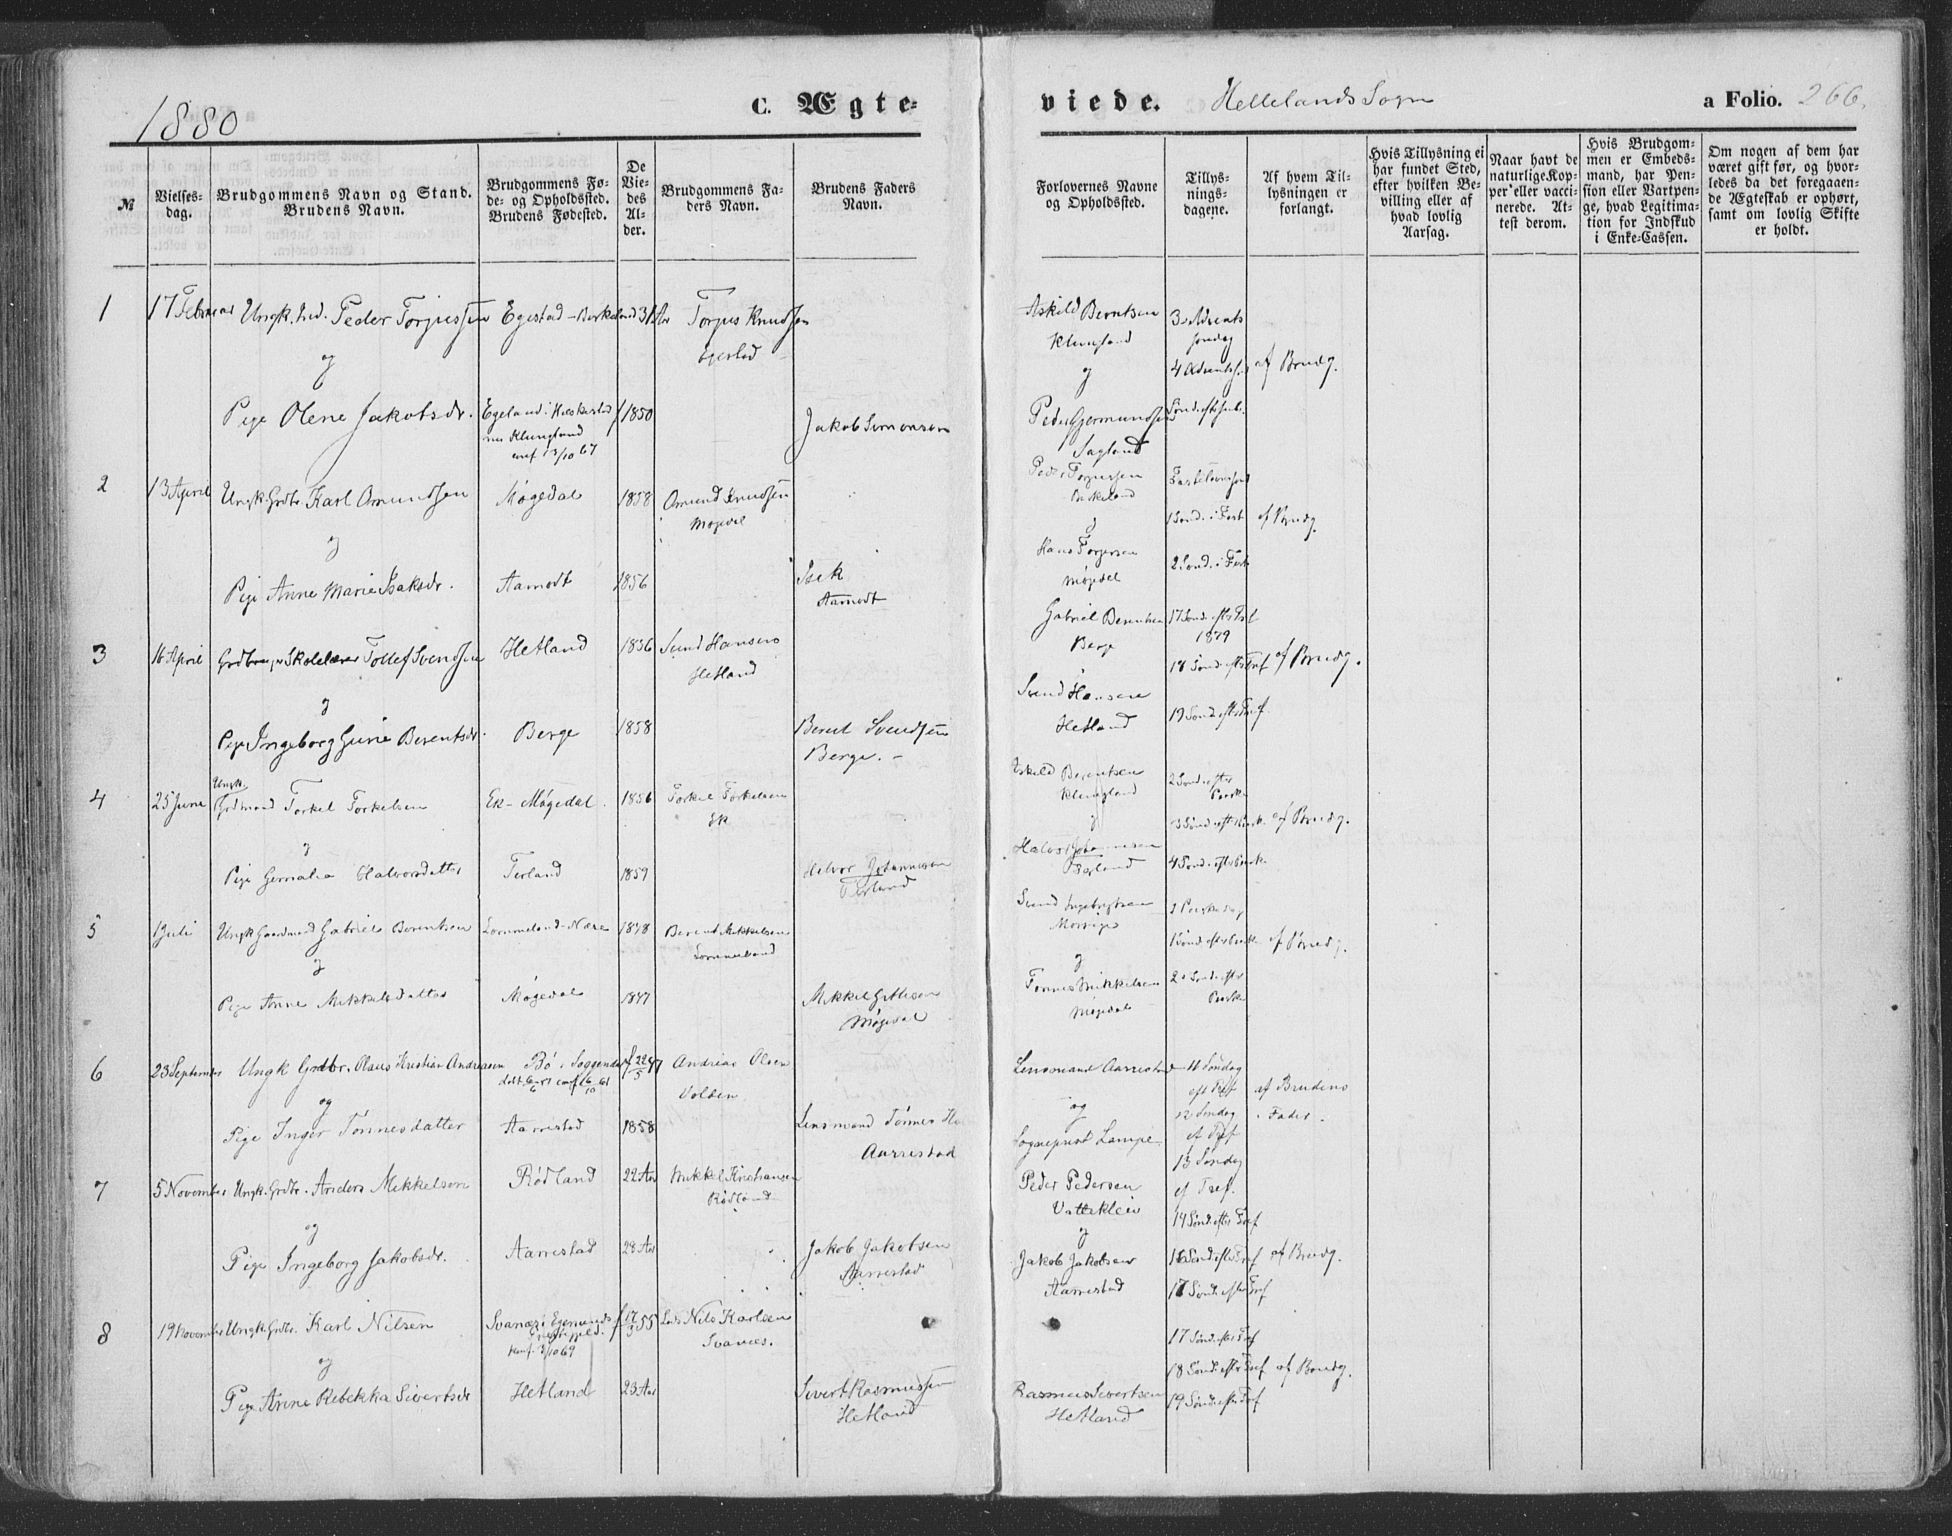 1880
C. Ægte-
viede. Hellelands Sogn
a Folio. 266.
№
Vielses-
dag.
Brudgommens Navn og Stand.
Brudens Navn.
Brudgommens Fø-
de- og Opholdssted.
Brudens Fødested.
De
Vie-
des
Al-
der.
Brudgommens Fa-
ders Navn.
Brudens Faders
Navn.
Forlovernes Navne
og Opholdssted.
Tillys-
nings-
dagene.
Af hvem Til-
lysningen er
forlangt.
Hvis Tillysning ei
har fundet Sted,
efter hvilken Be-
villing eller af
hvad lovlig
Aarsag.
Naar havt de
naturlige Kop-
per eller vacci-
nerede. At-
test derom.
Hvis Brudgom-
men er Embeds-
mand, har Pen-
sion eller Vartpen-
ge, hvad Legitima-
tion for Indskud
i Enke-Cassen.
Om nogen af dem har
været gift før, og hvor-
ledes da det foregaaen-
de Ægteskab er ophørt,
samt om lovlig Skifte
er holdt.
1 17 Februar Ungk. Ind. Peder Torjussen Egestad - Birkeland 31 Aar Torjus Knudsen
Egestad
og
Pige Olene Jakobsdr. Egeland i Heskestad f 1850 Jakob Simonsen
nu Klungland
conf 13/10 67
Askild Berntsen
Klungland
og
Peder Gjermundsen
Sagland
3 Advents
søndag
4 Adventss. af Brudg.
2 13 April Ungk. Grdbr. Karl Omundsen Møgedal 1858 Omund Knudsen
Møgedal
og
Pige Anne Marie Isaksdr. Aamodt 1856 Isak
Aamodt
Peder Torjussen
Birkeland
og
Hans Torjersen
Møgedal
Fastelavnssønd
1 Sønd. i Fast. af Brudg.
2 Sønd. i Fast
3 16 April Grdbr. og Skolelærer Tollef Svendsen Hetland 1856 Svend Hansen
Hetland
og
Pige Ingeborg Gurie Berentsdr. Berge 1858 Berent Svendsen
Berge.
Gabriel Berentsen
Berge
Svend Hansen
Hetland
17 Sønd. efter Tref
1879
18 Sønd. efter Tref af Brudg.
19 Sønd. efter Tref.
4 25 Juni Ungk.
Grdmand Torkel Torkelsen Ek - Møgedal. 1856 Torkel Torkelsen
Ek
og
Pige Gemalia Halvorsdatter Terland 1859 Halvor Johannesen
Terland
Askild Berentsen
Klungland
og
Halvor Johannesen
Terland
2 Sønd. efter
Paaske
3 Sønd. efter Paask. af Brudg.
4 Sønd. efter Paask.
5 1 Juli Ungk Gaardmand Gabriel Berentsen Lommeland - Næve 1848 Berent Mikkelsen
Lommeland
og
Pige Anne Mikkelsdatter Møgedal 1847 Mikkel Gitlesen
Møgedal
Svend Ingebrigtsen
og
Tønnes Mikkelsen
Møgedal
2 Paaskedag
1 Sønd. efter Paask. af Brudg.
2 Sønd. efter
Paaske
6 23 September Ungk Grdbr. Olaus Kristian Andreasen Bø i Soggendal f 22/5 47 Andreas Olsen
Volden
og
Pige Inger Tønnesdatter Aarrestad 1858 Lensmand Tønnes
Aarrestad
Lensmand Aarrestad
og
Sogneprest Lampe
11 Søndag
eft Tref
12 Søndag
ef Tref
13 Søndag
ef Tref.
af Brudens
Fader.
7 5 November Ungk. Grdbr. Anders Mikkelsen Rødland 22 Aar Mikkel Kristiansen
Rødland
og
Pige Ingeborg Jakobsdr. Aarrestad 28 Aar Jakob Jakobsen
Aarrestad
Peder Pedersen
Vatteklev
og
Jakob Jakobsen
Aarrestad
14 Sønd. efter Tref
16 Sønd. efter Tref af Brudg.
17 Sønd. efter Tref
8 19 November Ungk. Grdbr. Karl Nilsen Svanæs i Egersunds f 17/3 55 Nils Karlsen
Svanæs.
conf. 3/10 69
og
Pige Anne Rebekka Sivertsdr Hetland 23 Aar Sivert Rasmussen
Hetland
Rasmus Sivertsen
Hetland
17 Sønd. efter Tref
18 Sønd. efter Tref af Brudg.
19 Sønd. efter Tref